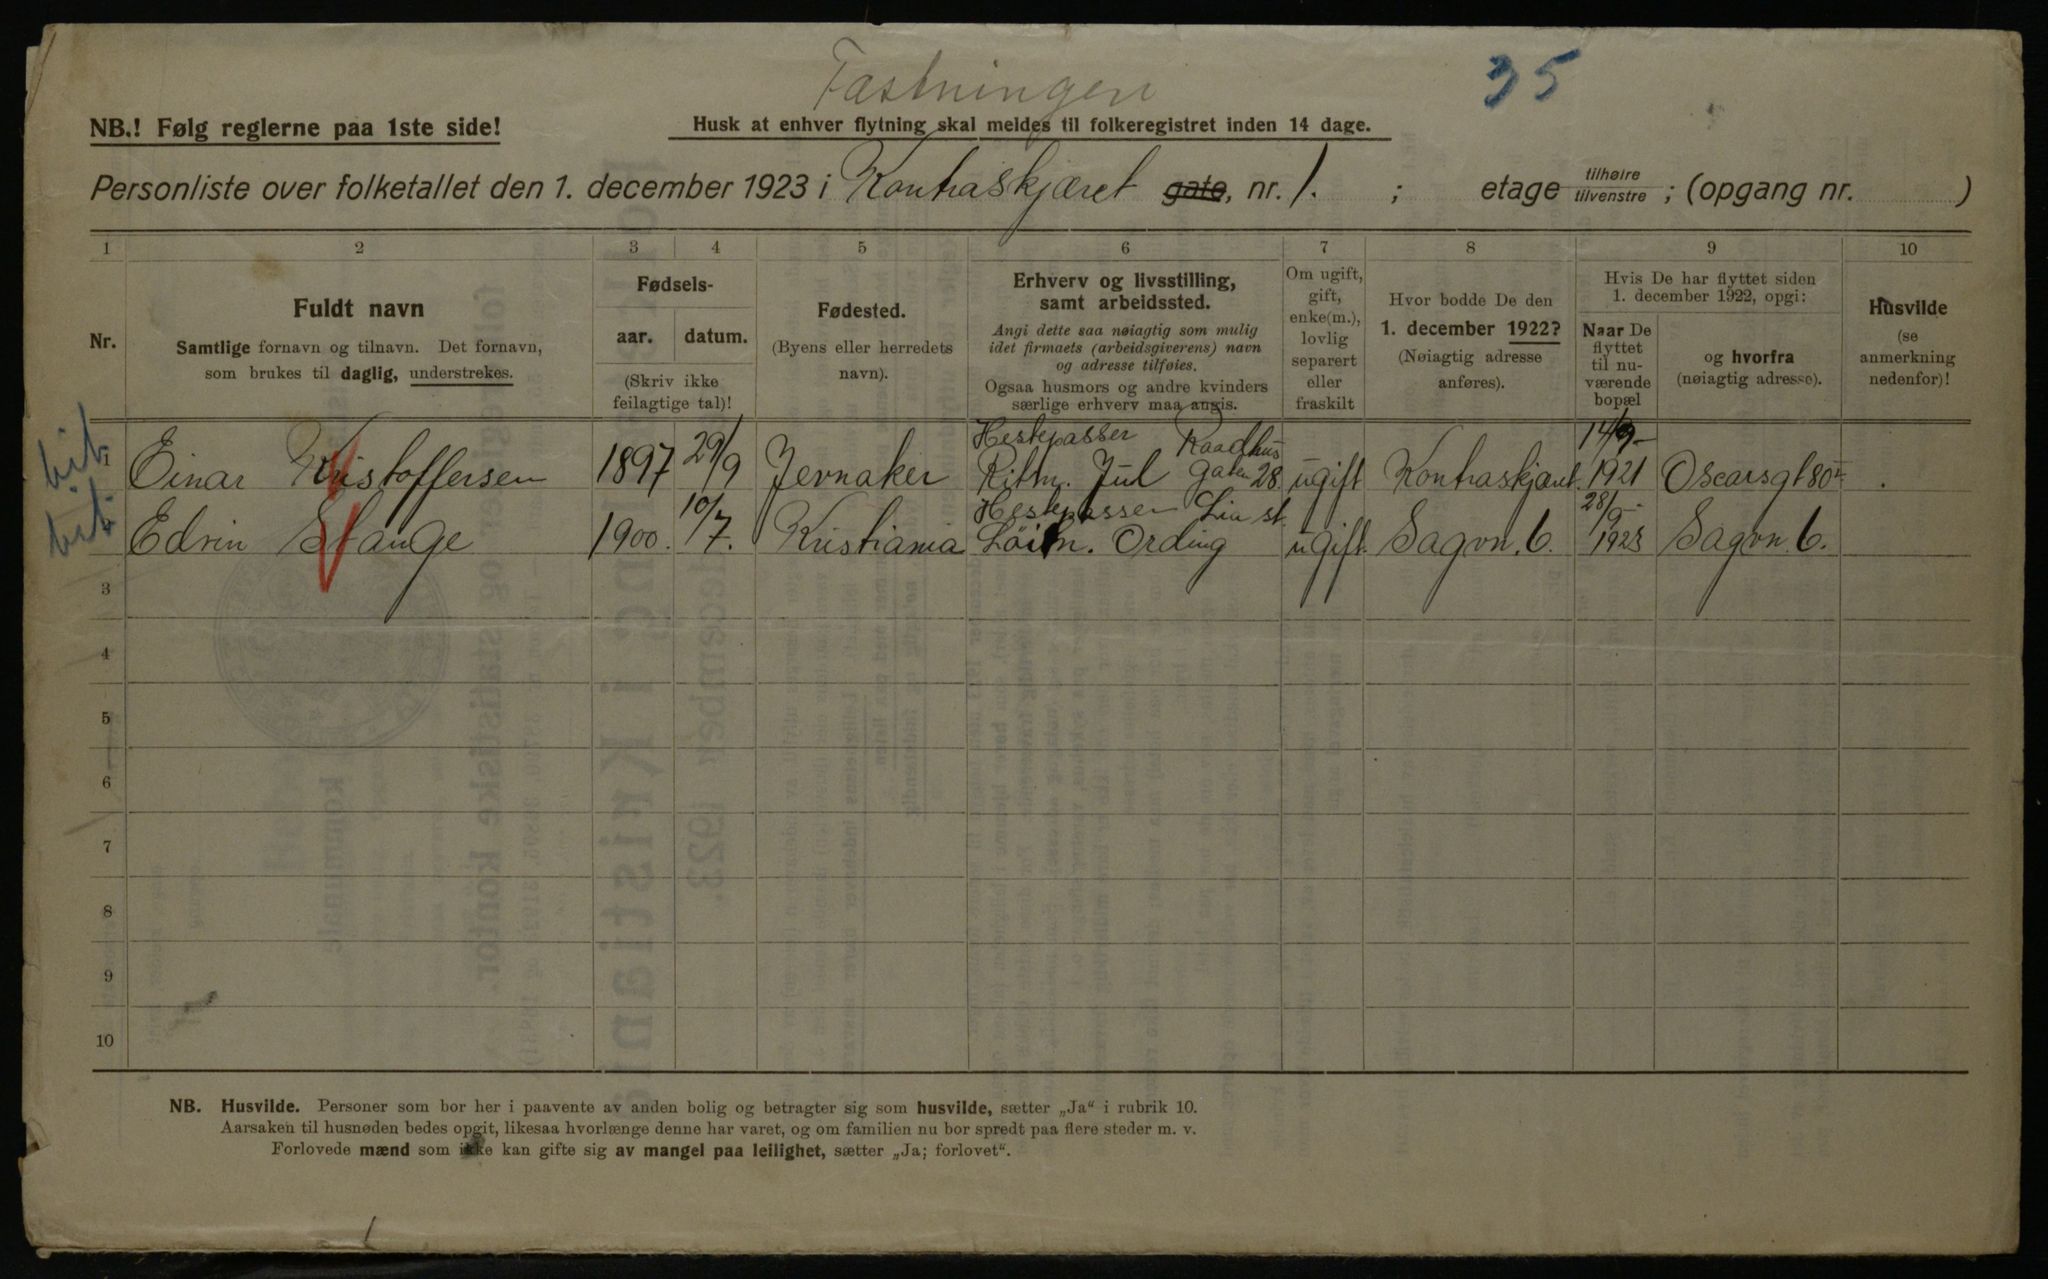 Fastningen
35
NB.! Følg reglerne paa 1ste side!
Husk at enhver flytning skal meldes til folkeregistret inden 14 dage.
Personliste over folketallet den 1. december 1923 i Kontraskjæret gate, nr. 1. ; etage tilhøire tilvenstre ; (opgang nr. )
1 2 3 4 5 6 7 8 9 10
Nr.
Fuldt navn
Samtlige fornavn og tilnavn. Det fornavn,
som brukes til daglig, understrekes.
Fødsels-
aar. datum.
(Skriv ikke
feilagtige tal)!
Fødested.
(Byens eller herredets
navn).
Erhverv og livsstilling,
samt arbeidssted.
Angi dette saa nøiagtig som mulig
idet firmaets (arbeidsgiverens) navn
og adresse tilføies.
Ogsaa husmors og andre kvinders
særlige erhverv maa angis.
Om ugift,
gift,
enke(m.),
lovlig
separert
eller
fraskilt
Hvor bodde De den
1. december 1922?
(Nøiagtig adresse
anføres).
Hvis De har flyttet siden
1. december 1922, opgi:
Naar De
flyttet
til nu-
værende
bopæl
og hvorfra
(nøiagtig adresse).
Husvilde
(se
anmerkning
nedenfor)!
bit.
1 Einar Kristoffersen 1897 29/9 Jevnaker Hestepasser Raadhus Ritm. Jul gaten 28. ugift Kontraskjæret 14/9- 1921 Oscarsgt 80
bit.
Edvin Stange 1900. 10/7. Kristiania Hestepasser Løitn. Ording ugift. Sagvn. 6. 28/9- 1923 Sagvn. 6.
3
4
5
6
7
8
9
10
NB. Husvilde. Personer som bor her i paavente av anden bolig og betragter sig som husvilde, sætter „Ja“ i rubrik 10.
Aarsaken til husnøden bedes opgit, likesaa hvorlænge denne har varet, og om familien nu bor spredt paa flere steder m. v.
Forlovede mænd som ikke kan gifte sig av mangel paa leilighet, sætter „Ja; forlovet“.